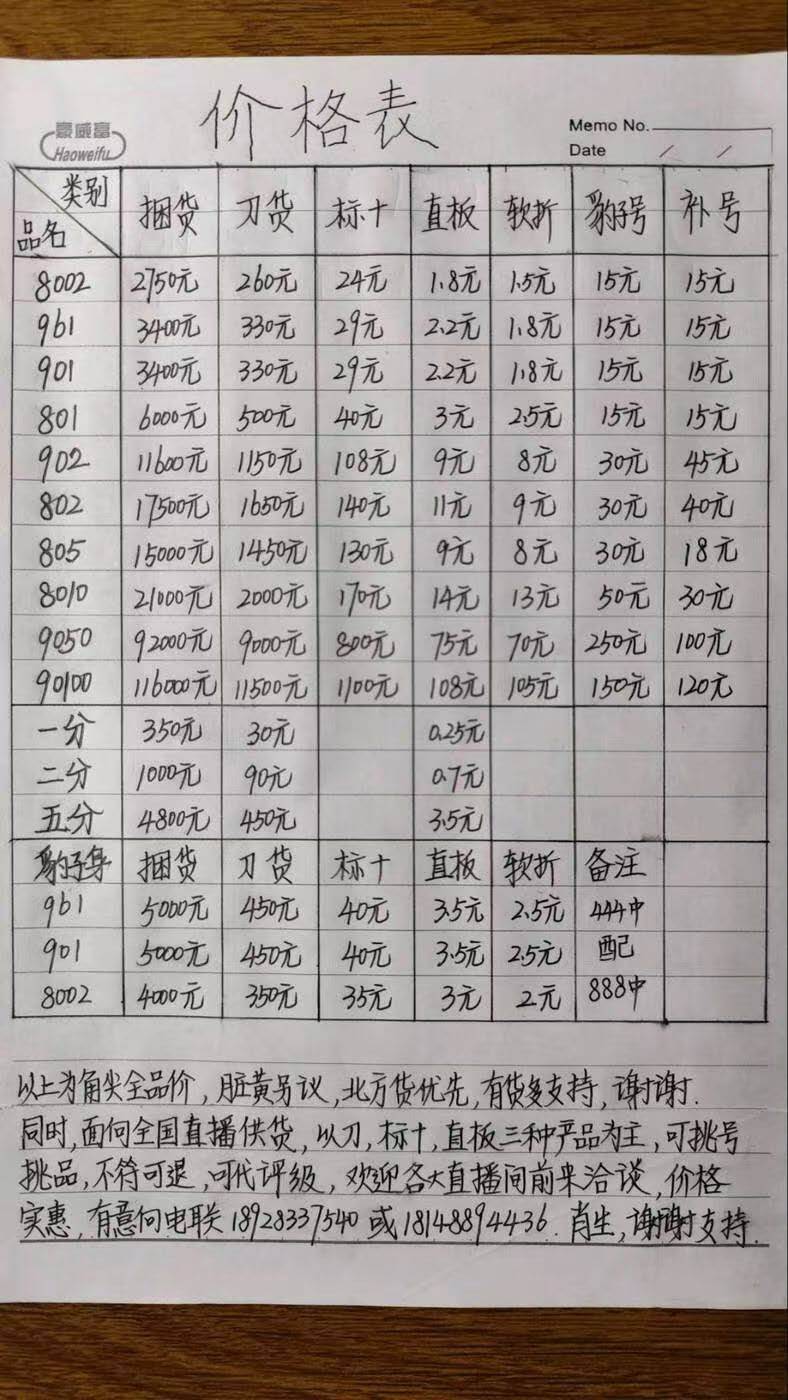 价格表
豪威富
Haoweifu
Memo No.
Date / /
类别 品名 捆货 刀货 标十 直板 软折 豹子号 补号
8002 2750元 260元 24元 1.8元 1.5元 15元 15元
961 3400元 330元 29元 2.2元 1.8元 15元 15元
901 3400元 330元 29元 2.2元 1.8元 15元 15元
801 6000元 500元 40元 3元 2.5元 15元 15元
902 11600元 1150元 108元 9元 8元 30元 45元
802 17500元 1650元 140元 11元 9元 30元 40元
805 15000元 1450元 130元 9元 8元 30元 18元
8010 21000元 2000元 170元 14元 13元 50元 30元
9050 92000元 9000元 800元 75元 70元 250元 100元
90100 116000元 11500元 1100元 108元 105元 150元 120元
一分 350元 30元 0.25元
二分 1000元 90元 0.7元
五分 4800元 450元 3.5元
豹子号 捆货 刀货 标十 直板 软折 备注
961 5000元 450元 40元 3.5元 2.5元 444中
901 5000元 450元 40元 3.5元 2.5元 配
8002 4000元 350元 35元 3元 2元 888中
以上为角尖全品价,脏黄另议,北方货优先,有货多支持,谢谢.
同时,面向全国直播供货,以刀,标十,直板三种产品为主,可挑号
挑品,不符可退,可代评级,欢迎各大直播间前来洽谈,价格
实惠,有意向电联18928337540或18148894436.肖生,谢谢支持.